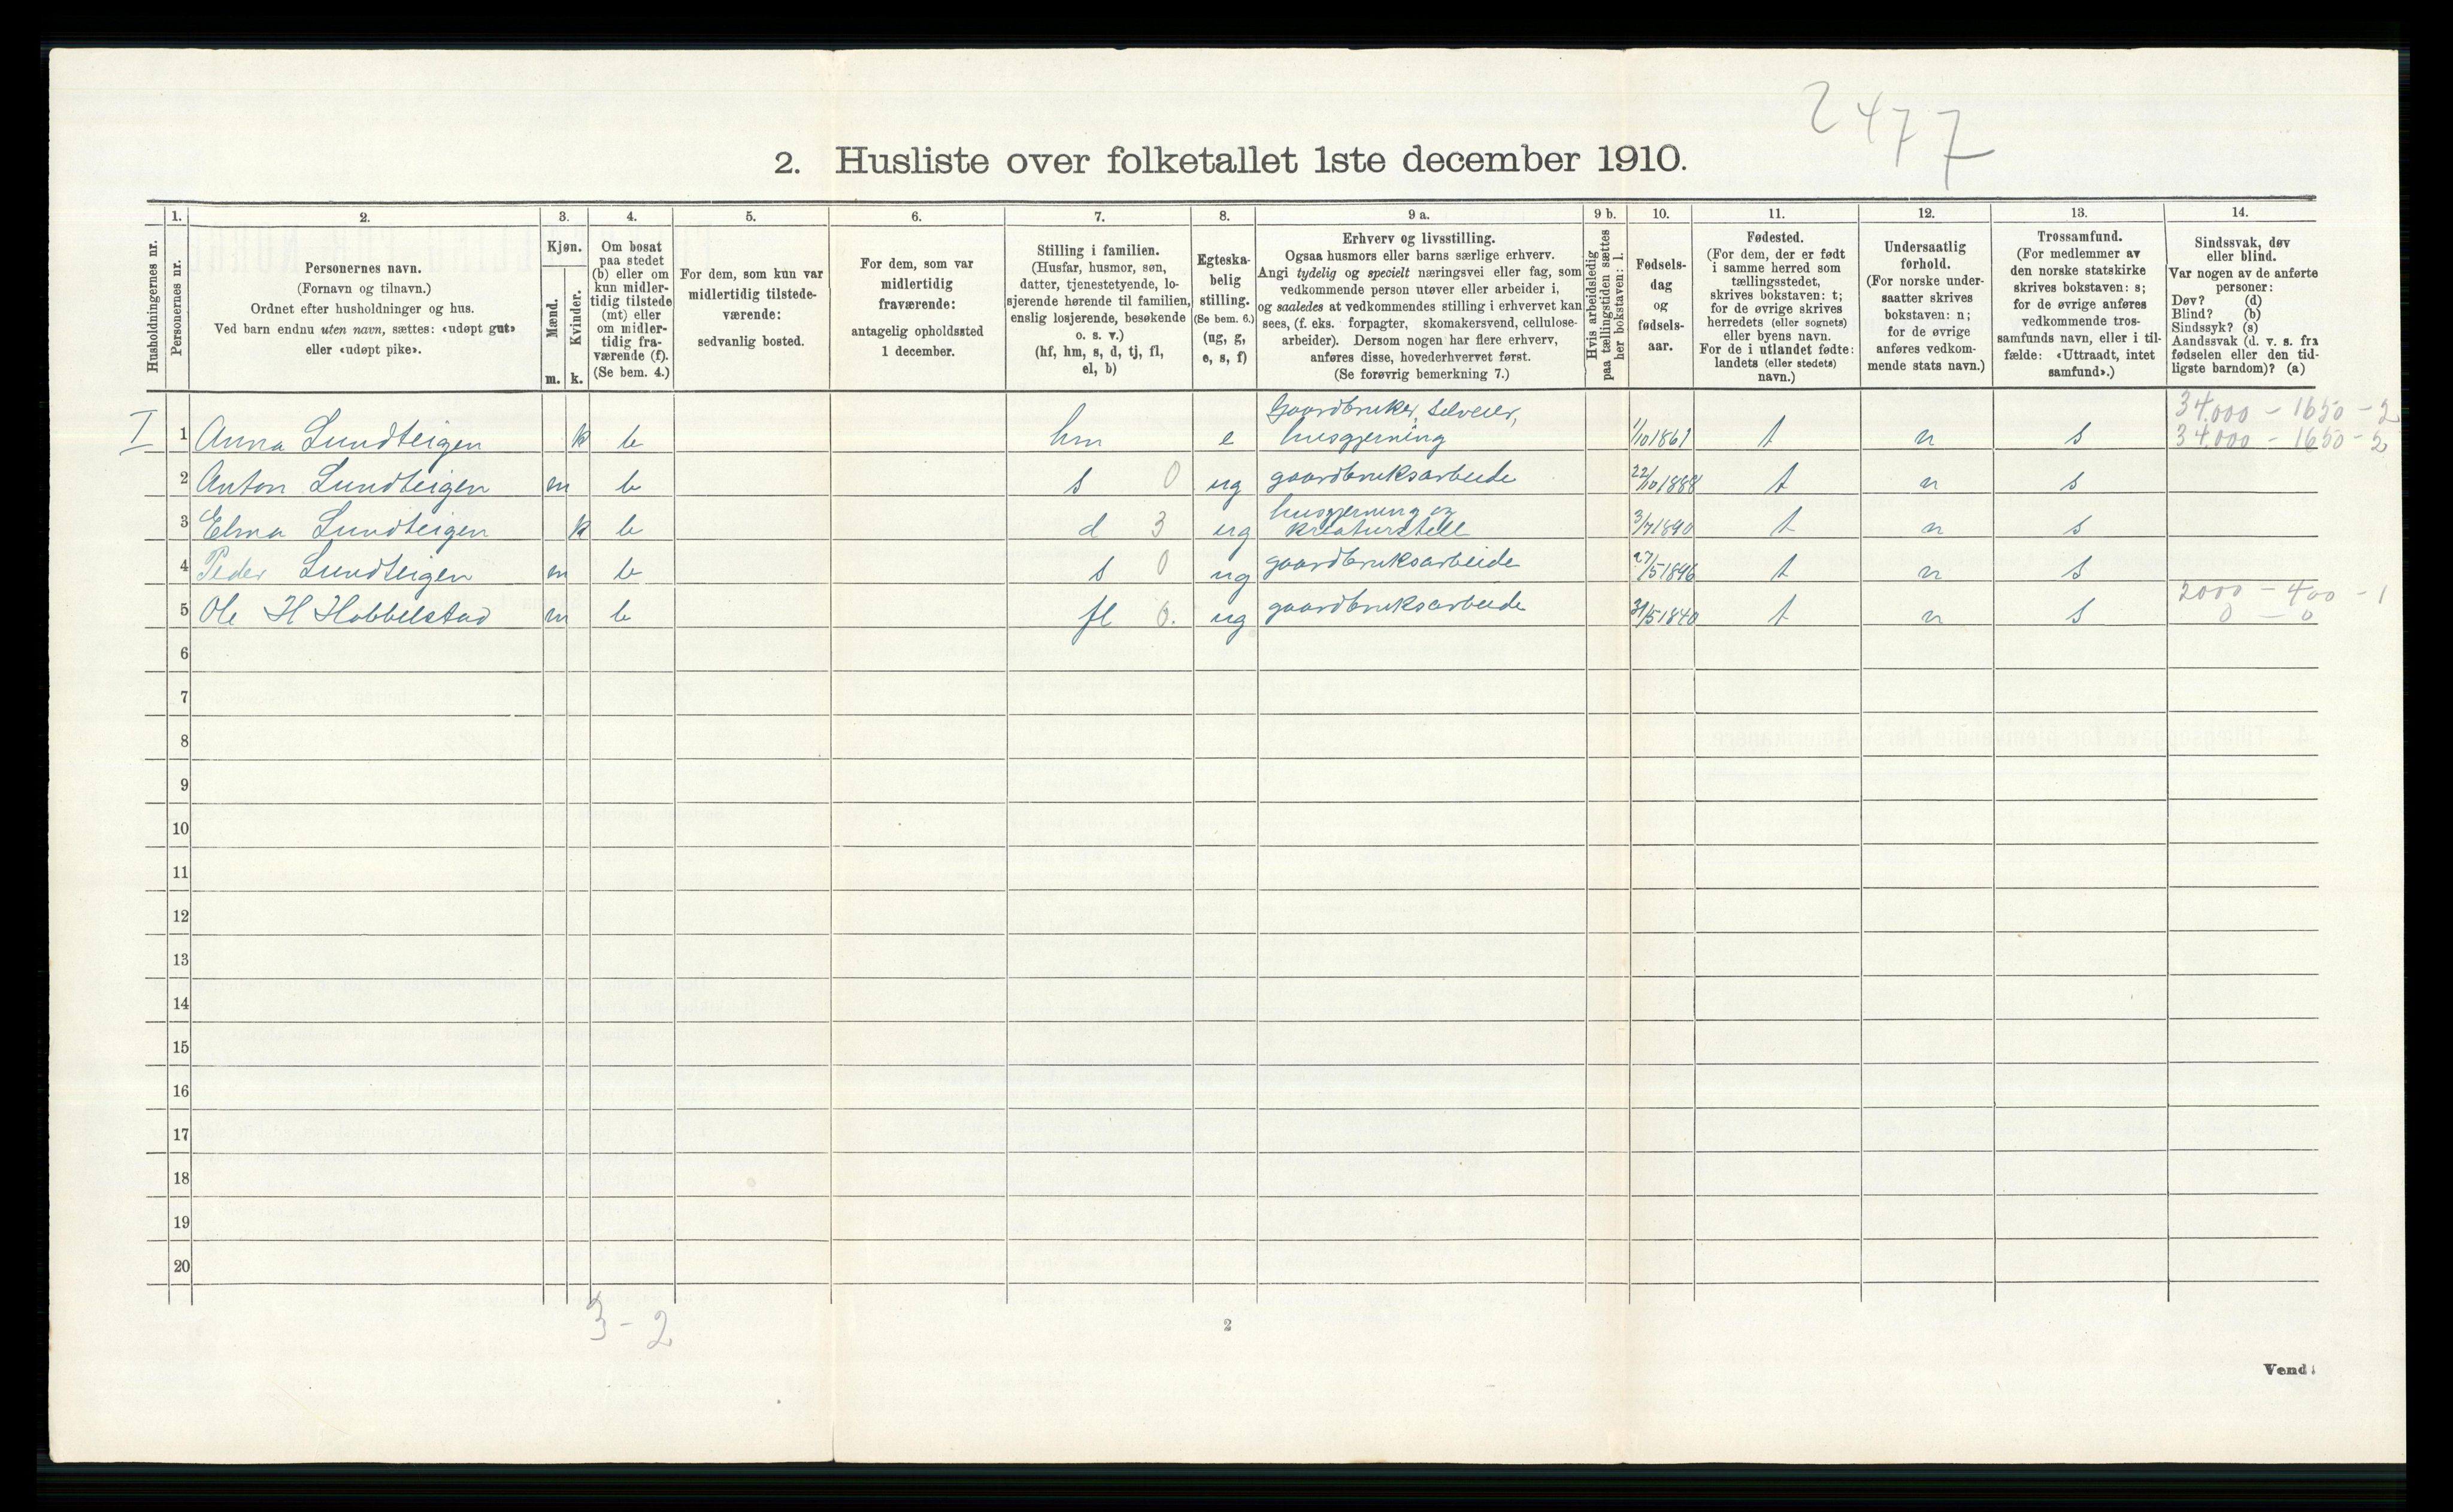 2477
2. Husliste over folketallet 1ste december 1910.
Husholdningernes nr.
1. Personernes nr.
2. Personernes navn.
(Fornavn og tilnavn.)
Ordnet efter husholdninger og hus.
Ved barn endnu uten navn, sættes: «udøpt gut»
eller «udøpt pike».
3. Kjøn.
Mænd. m.
Kvinder. k.
4. Om bosat
paa stedet
(b) eller om
kun midler-
tidig tilstede
(mt) eller
om midler-
tidig fra-
værende (f).
(Se bem. 4.)
5. For dem, som kun var
midlertidig tilstede-
værende:
sedvanlig bosted.
6. For dem, som var
midlertidig
fraværende:
antagelig opholdssted
1 december.
7. Stilling i familien.
(Husfar, husmor, søn,
datter, tjenestetyende, lo-
sjerende hørende til familien,
enslig losjerende, besøkende
o. s. v.)
(hf, hm, s, d, tj, fl,
el, b)
8. Egteska-
belig
stilling.
(Se bem. 6.)
(ug, g,
e, s, f)
9 a. Erhverv og livsstilling.
Ogsaa husmors eller barns særlige erhverv.
Angi tydelig og specielt næringsvei eller fag, som
vedkommende person utøver eller arbeider i,
og saaledes at vedkommendes stilling i erhvervet kan
sees, (f. eks. forpagter, skomakersvend, cellulose-
arbeider). Dersom nogen har flere erhverv,
anføres disse, hovederhvervet først.
(Se forøvrig bemerkning 7.)
9 b. Hvis arbeidsledig
paa tællingstiden sættes
her bokstaven: l.
10. Fødsels-
dag
og
fødsels-
aar.
11. Fødested.
(For dem, der er født
i samme herred som
tællingsstedet,
skrives bokstaven: t;
for de øvrige skrives
herredets (eller sognets)
eller byens navn.
For de i utlandet fødte:
landets (eller stedets)
navn.)
12. Undersaatlig
forhold.
(For norske under-
saatter skrives
bokstaven: n;
for de øvrige
anføres vedkom-
mende stats navn.)
13. Trossamfund.
(For medlemmer av
den norske statskirke
skrives bokstaven: s;
for de øvrige anføres
vedkommende tros-
samfunds navn, eller i til-
fælde: «Uttraadt, intet
samfund».)
14. Sindssvak, døv
eller blind.
Var nogen av de anførte
personer:
Døv? (d)
Blind? (b)
Sindssyk? (s)
Aandssvak (d. v. s. fra
fødselen eller den tid-
ligste barndom)? (a)
Gaardbruker, selveier, 34.000 - 1650 - 2
I 1 Anna Lundteigen k b hm e husgjerning 1/10 1861 t n s 34.000 - 1650 - 2
2 Anton Lundteigen m b s 0 ug gaardbruksarbeide 22/10 1888 t n s
husgjerning og
3 Elma Lundteigen k b d 3 ug kreaturstell 3/7 1890 t n s
4 Peder Lundteigen m b s 0 ug gaardbruksarbeide 27/5 1896 t n s
2000 - 400 - 1
5 Ole H Hobbelstad m b fl 0. ug gaardbruksarbeide 31/5 1840 t n s 0 - 0
6
7
8
9
10
11
12
13
14
15
16
17
18
19
20
3 - 2
2
Vend!